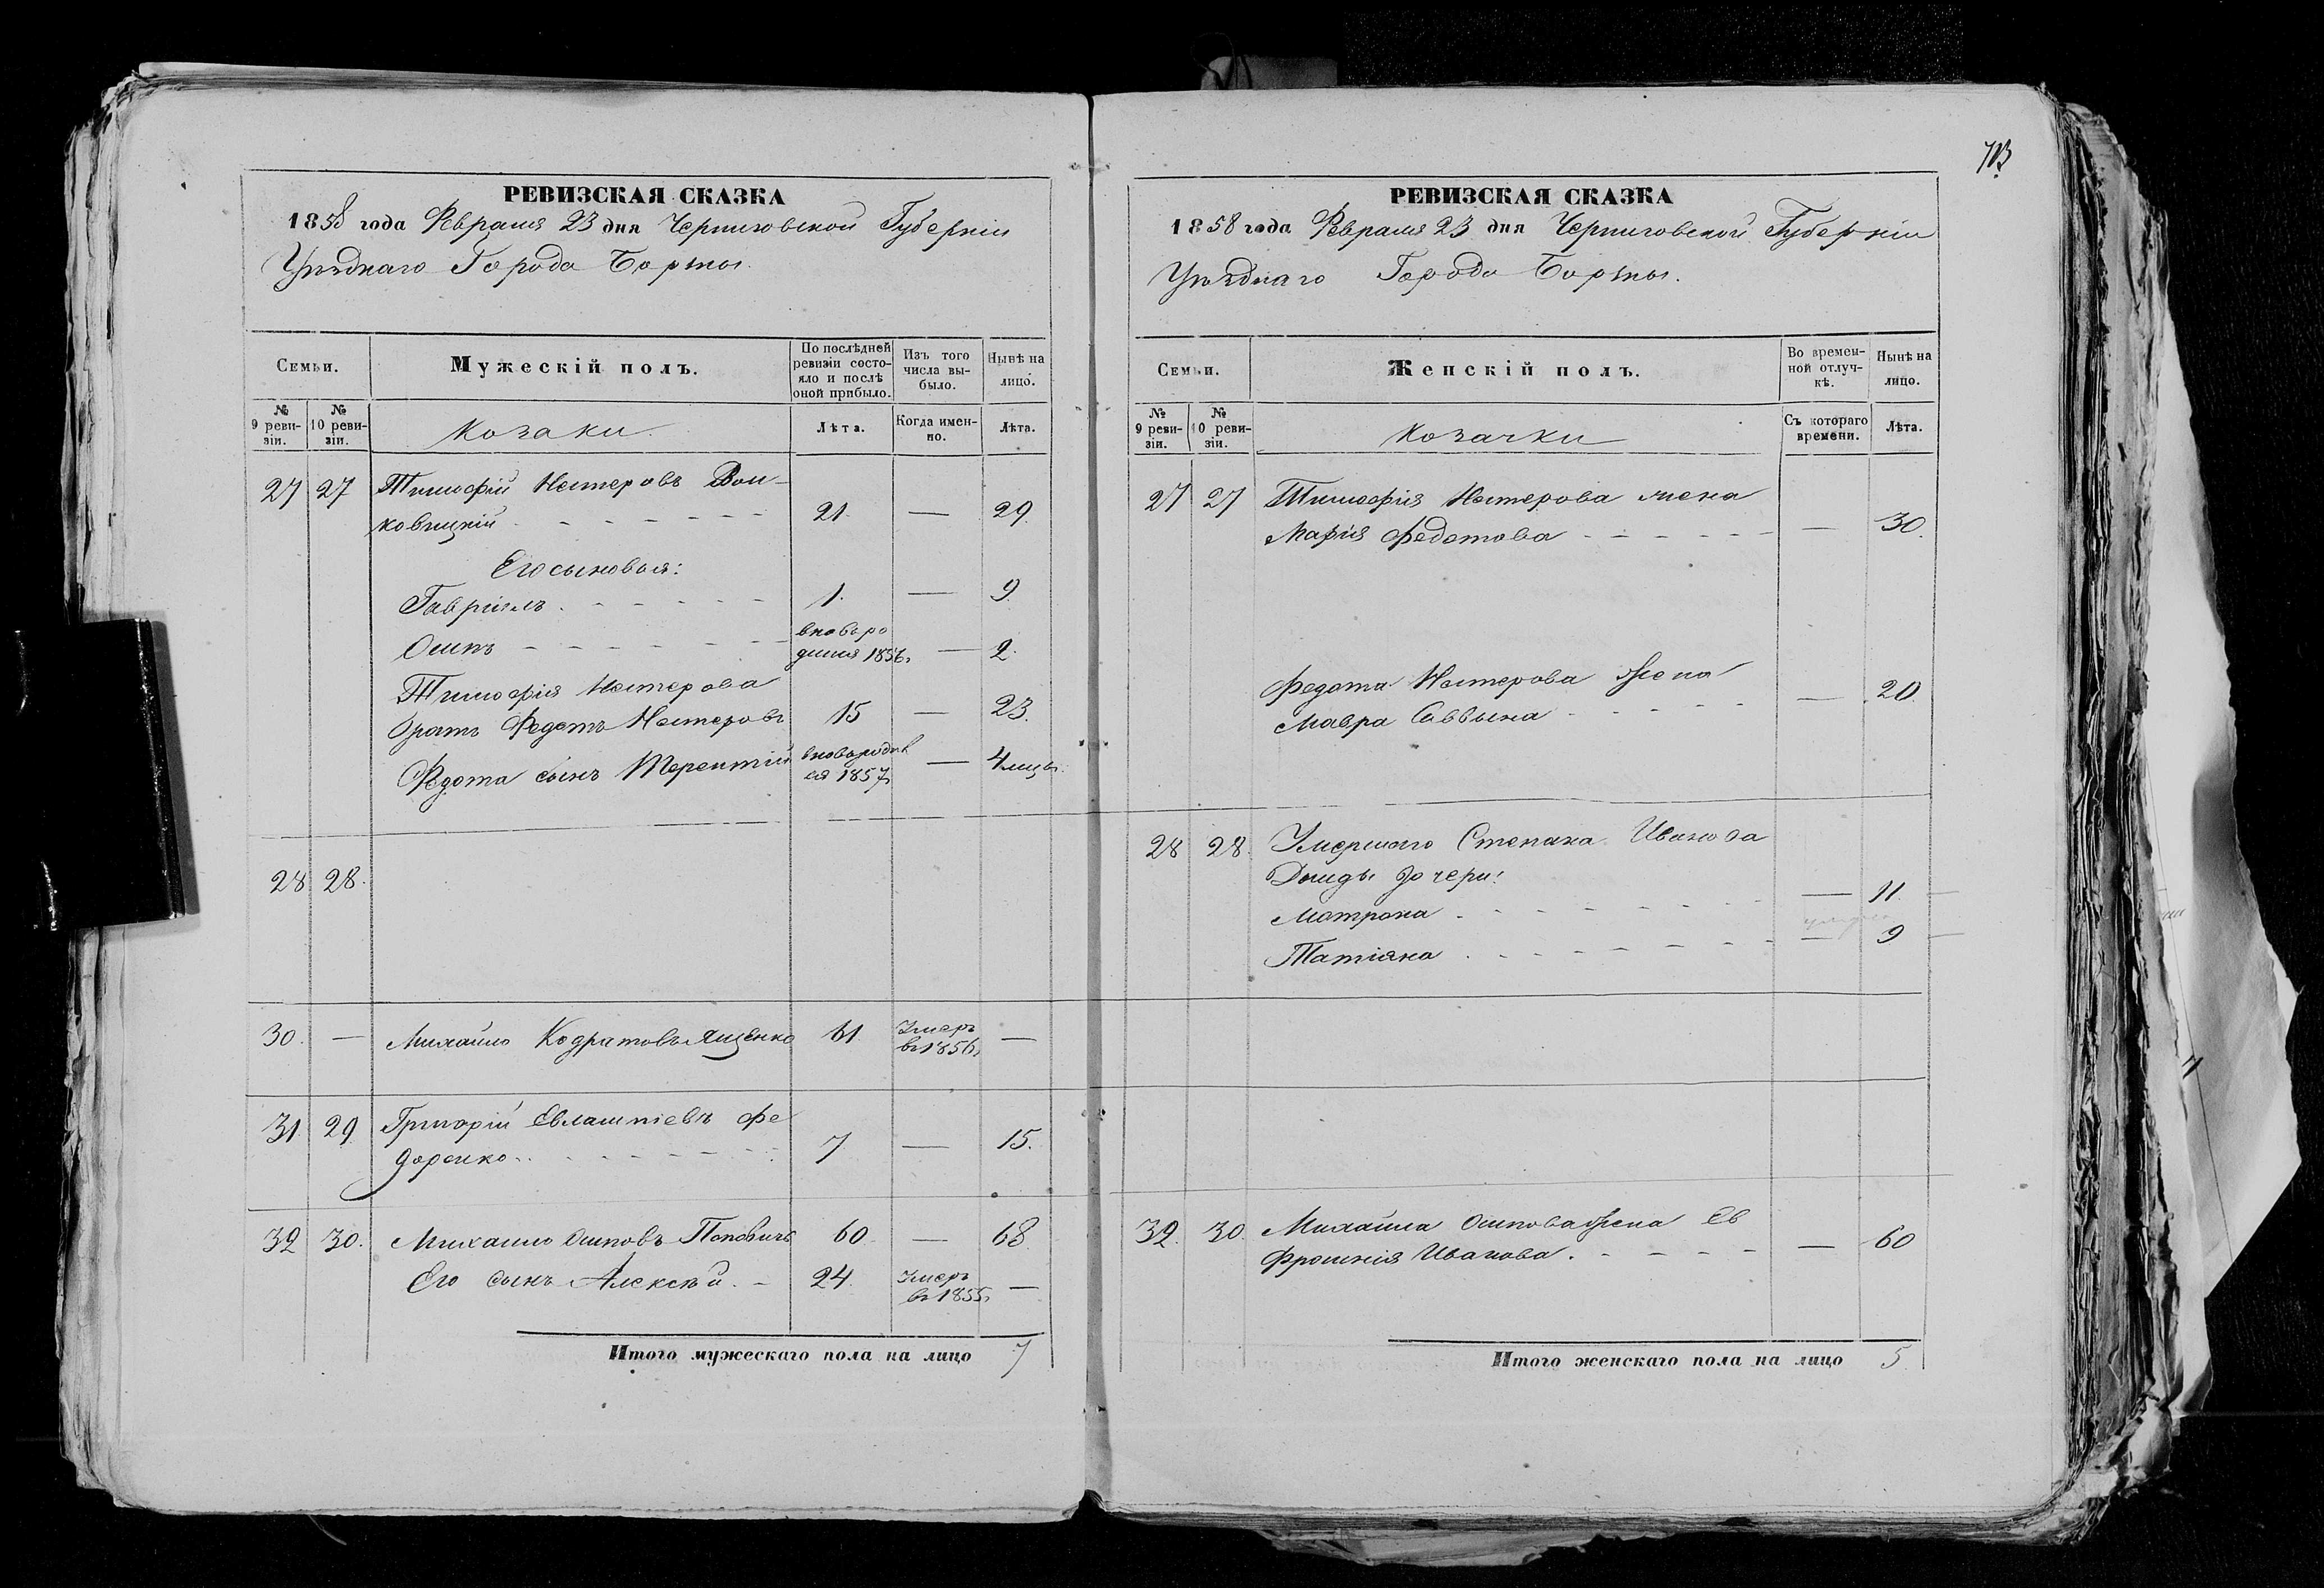 713
РЕВИЗСКАЯ СКАЗКА
1858 года Февраля 23 дня Черниговской Губерніи
Уѣзднаго Города Борзны.
Семьи.
Мужескій полъ.
По послѣдней ревизіи состояло и послѣ оной прибыло.
Изъ того числа выбыло.
Нынѣ на лицо.
№ 9 ревизіи.
№ 10 ревизіи.
Козаки.
Лѣта.
Когда именно.
Лѣта.
27 27 Тимофій Нестеровъ
ковицкій 21 — 29
Его сыновья:
Гавріилъ 1. — 9
Осипъ вновь родился 1856г — 2.
Тимофія Нестерова
братъ Федотъ Нестеровъ 15 — 23.
Федота сынъ Терентій вновь родился 1857г — 4 мцы
28 28.
30. — Михайло Кодратовъ Ященко 61 Умеръ въ 1856г —
31. 29 Григорій Евлампіевъ Фе
доренко 7 — 15.
32 30. Михайло Осиповъ Поповичъ 60 — 68
Его сынъ Алексѣй. 24. Умеръ въ 1855г —
Итого мужескаго пола на лицо 7
РЕВИЗСКАЯ СКАЗКА
1858 года Февраля 23 дня Черниговской Губерніи
Уѣзднаго Города Борзны.
Семьи.
Женскій полъ.
Во временной отлучкѣ.
Нынѣ на лицо.
№ 9 ревизіи.
№ 10 ревизіи.
Козачки
Съ котораго времени.
Лѣта.
27 27 Тимофія Нестерова жена
Марія Федотова — 30.
Федота Нестерова жена
Мавра Саввына — 20
28 28. Умершаго Степана Иванова
дочери:
Матрона — 11
Татіяна — 9
32. 30 Михайла Осипова жена Ев
фросинія Иванова. — 60
Итого женскаго пола на лицо 5.